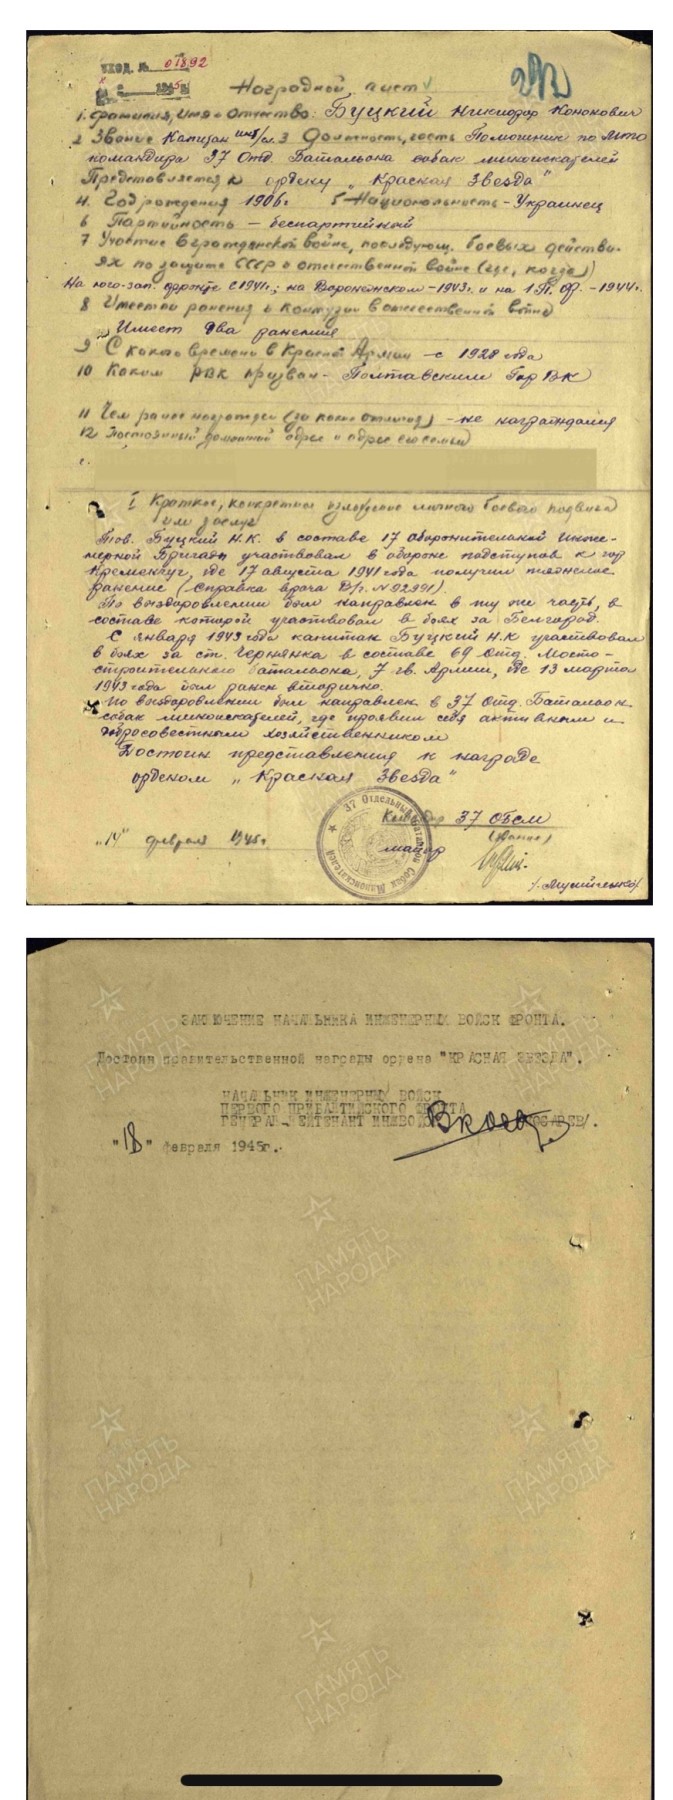 ВХОД. № 01892
1945
292
Наградной лист
1. Фамилия, имя и отчество: Буцкий Никиодор Кононович
2 Звание Капитан инт/сл. 3 Должность, часть Помощник по МТО
командира 37 Отд. Батальона собак миноискателей
Представляется к ордену „Красная Звезда"
4. Год рождения 1906г 5 Национальность - Украинец
6 Партийность - беспартийный
7 Участие в гражданской войне, последующ. боевых действи-
ях по защите СССР и отечественной войне (где, когда)
На юго-зап. фронте с 1941г; на Воронежском - 1943г и на 1 П. Ф. - 1944г.
8 Имеет ли ранения и контузии в отечественной войне
Имеет два ранения
9 С какого времени в Красной Армии - с 1928 года
10 Каким РВК призван - Полтавским Гор ВК
11 Чем ранее награжден (за какие отличия) - не награждался
12 Постоянный домашний адрес и адрес его семьи
г.
I Краткое, конкретное изложение личного боевого подвига
или заслуг
Тов. Буцкий Н.К. в составе 17 оборонительной Инже-
нерной Бригады участвовал в обороне подступов к гор
Кременчуг, где 17 августа 1941 года получил тяжелое
ранение (Справка врача В/г. № 92991).
По выздоровлении был направлен в ту же часть, в
составе которой участвовал в боях за Белгород.
С января 1943 года капитан Буцкий Н.К участвовал
в боях за ст. Чернянка в составе 69 Отд. Мосто-
строительного батальона, 7 гв. Армии, где 13 марта
1943 года был ранен вторично.
По выздоровлении был направлен в 37 Отд. Батальон
собак миноискателей, где проявил себя активным и
добросовестным хозяйственником
Достоин представления к награде
орденом „Красная Звезда"
Командир 37 ОБСМ
„14" февраля 1945г майор
37 Отдельный Батальон Собак Миноискателей
ЗАКЛЮЧЕНИЕ НАЧАЛЬНИКА ИНЖЕНЕРНЫХ ВОЙСК ФРОНТА.
Достоин правительственной награды ордена "КРАСНАЯ ЗВЕЗДА".
НАЧАЛЬНИК ИНЖЕНЕРНЫХ ВОЙСК
ПЕРВОГО ПРИБАЛТИЙСКОГО ФРОНТА
ГЕНЕРАЛ-ЛЕЙТЕНАНТ ИНЖВОЙСК
"18" февраля 1945г.
ПАМЯТЬ НАРОДА
ПАМЯТЬ НАРОДА
ПАМЯТЬ НАРОДА
ПАМЯТЬ НАРОДА
ПАМЯТЬ НАРОДА
ПАМЯТЬ НАРОДА